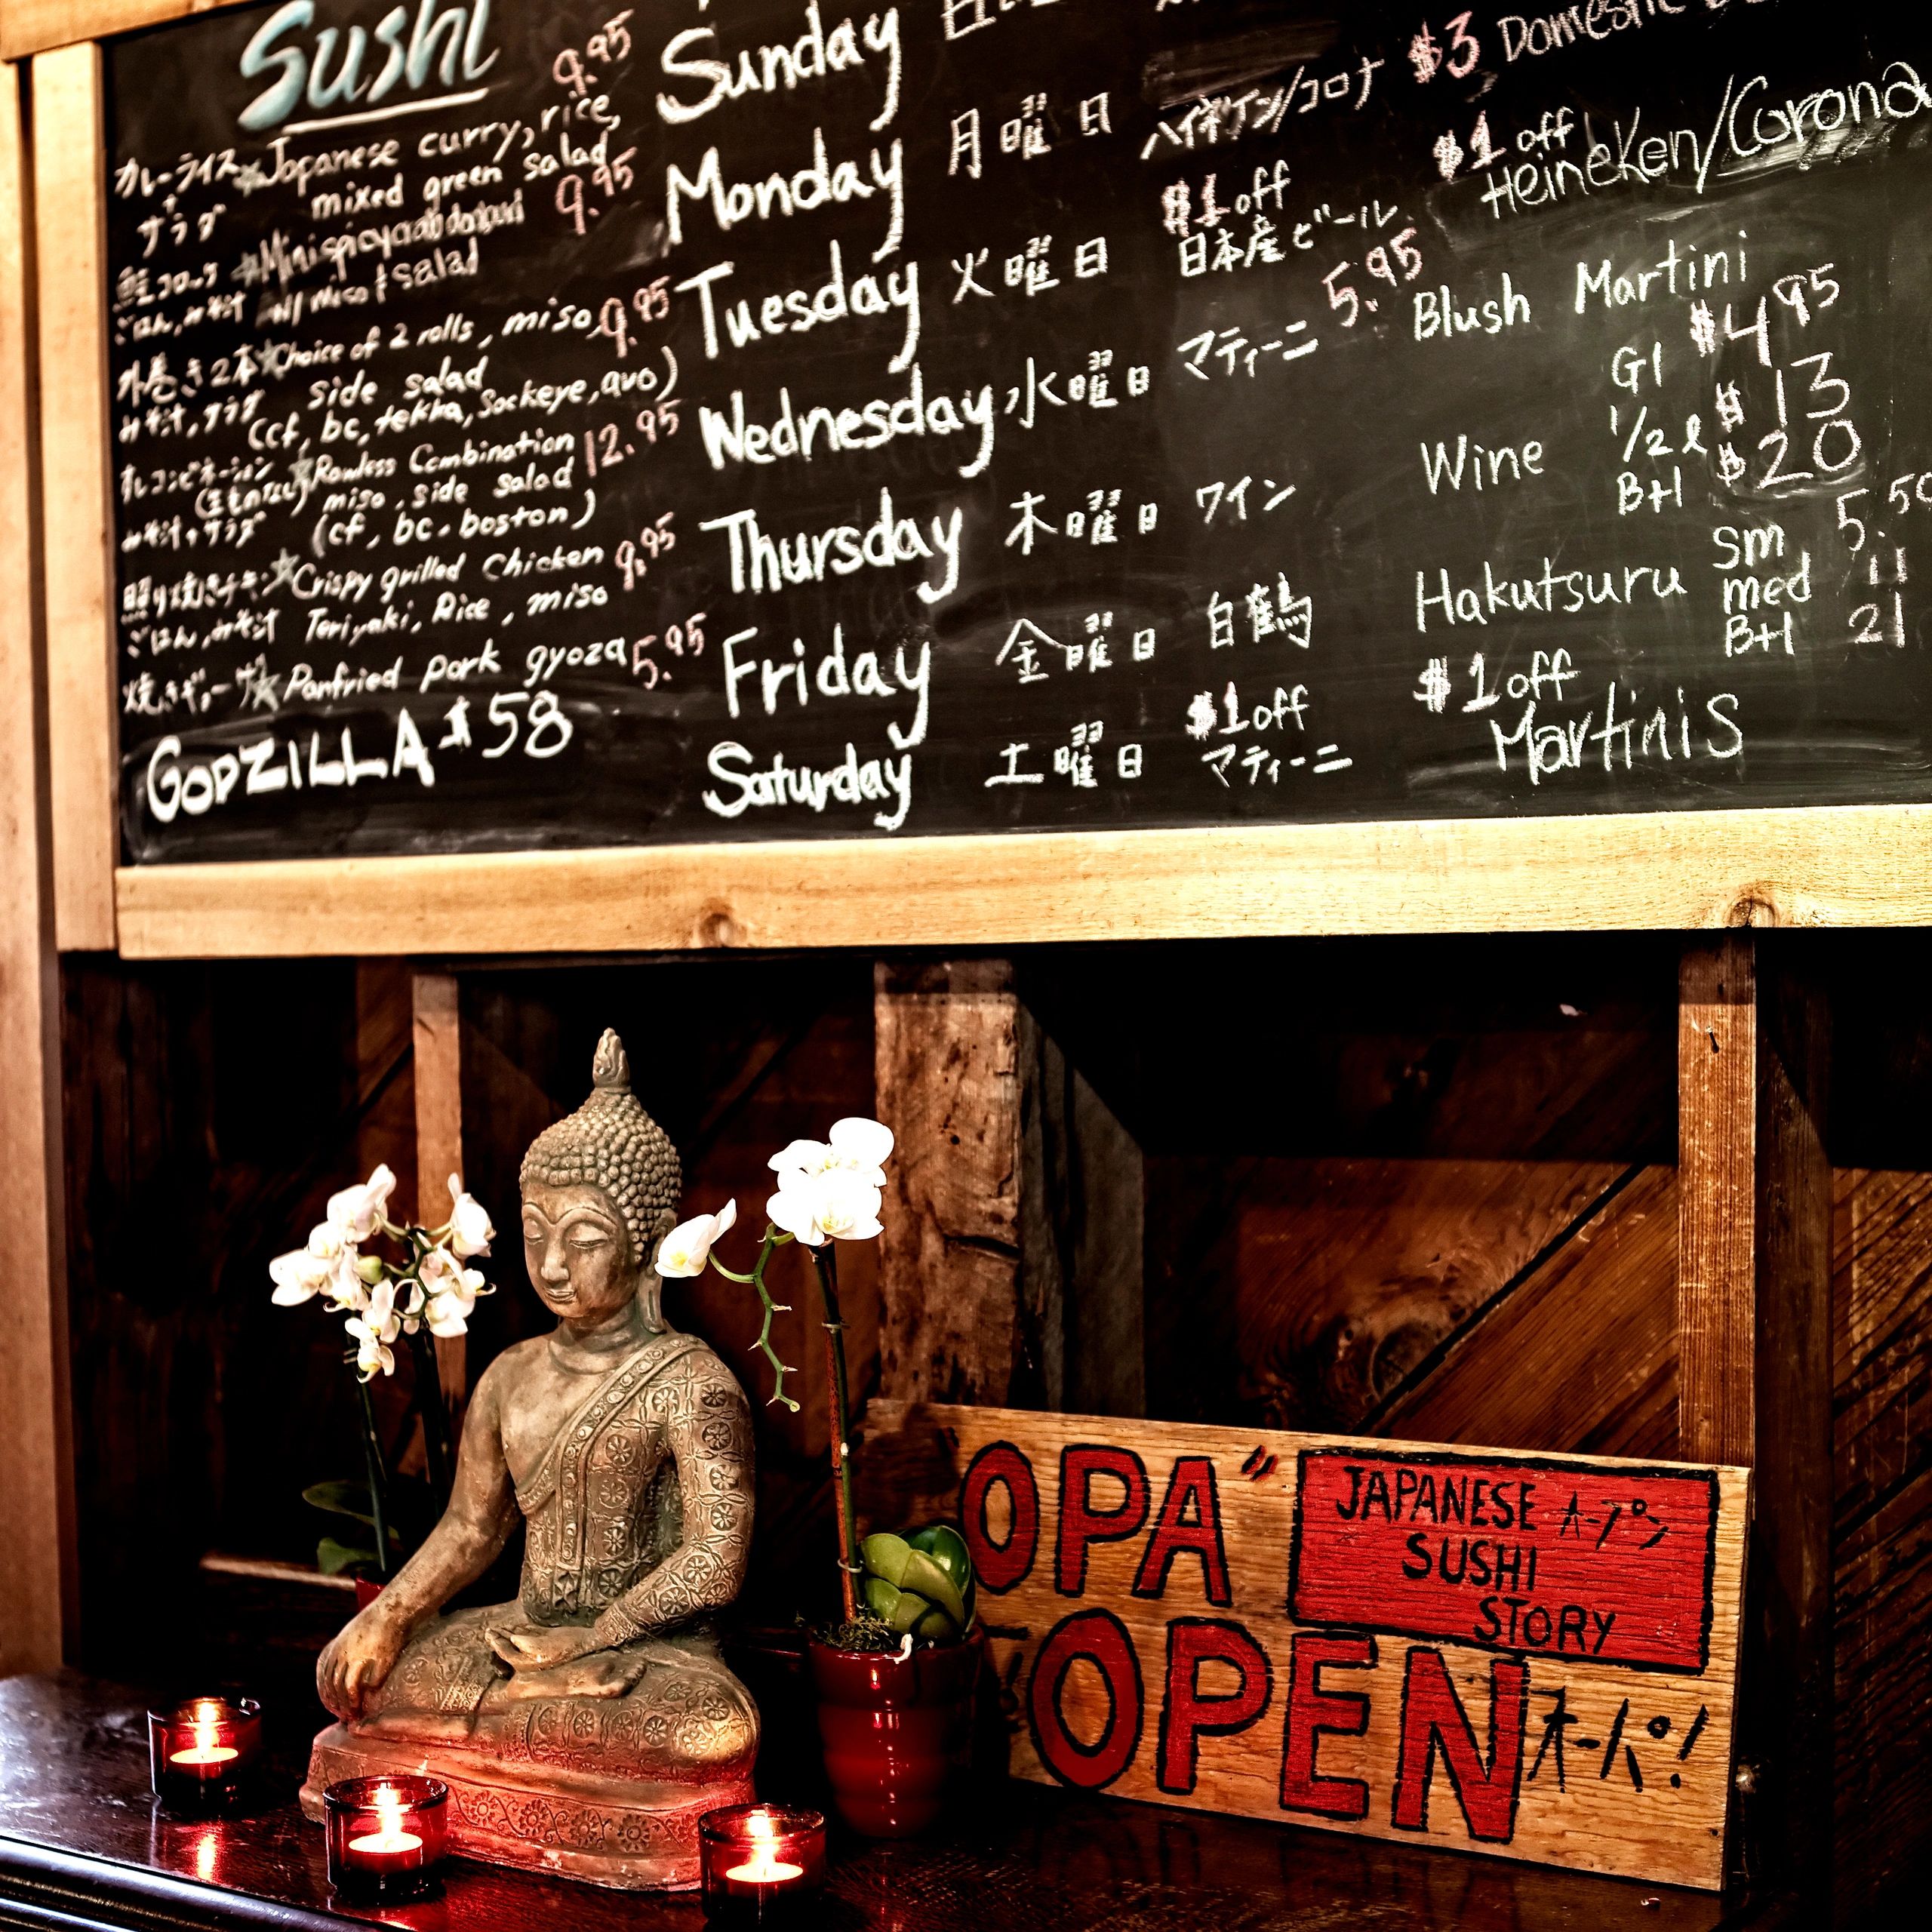 Sushi
カレーライス ☆Japanese curry, rice, 9.95
サラダ mixed green salad
鮭コロッケ ☆Mini spicy 9.95
ごはん,みそ汁 w/ miso + salad
外巻き2本 ☆Choice of 2 rolls, miso, 9.95
みそ汁,サラダ side salad
(cf, bc, tekka, Sockeye, avo)
☆Rawless Combination 12.95
miso, side salad
みそ汁,サラダ (cf, bc, boston)
照り焼きチキン ☆Crispy grilled Chicken 9.95
ごはん,みそ汁 Teriyaki, Rice, miso
☆Panfried pork gyoza 5.95
GODZILLA $58
Sunday
$3 Domestic
Monday 月曜日 ハイネケン/コロナ $1 off Heineken/Corona
Tuesday 火曜日 $1 off 日本産ビール
Wednesday 水曜日 マティーニ 5.95 Blush Martini
Thursday 木曜日 ワイン Wine Gl $4.95
1/2 l $13
Btl $20
Friday 金曜日 白鶴 Hakutsuru sm 5.50
med 11
Btl 21
Saturday 土曜日 $1 off マティーニ $1 off Martinis
"OPA"
JAPANESE オープン
SUSHI
STORY
OPEN オーパ!